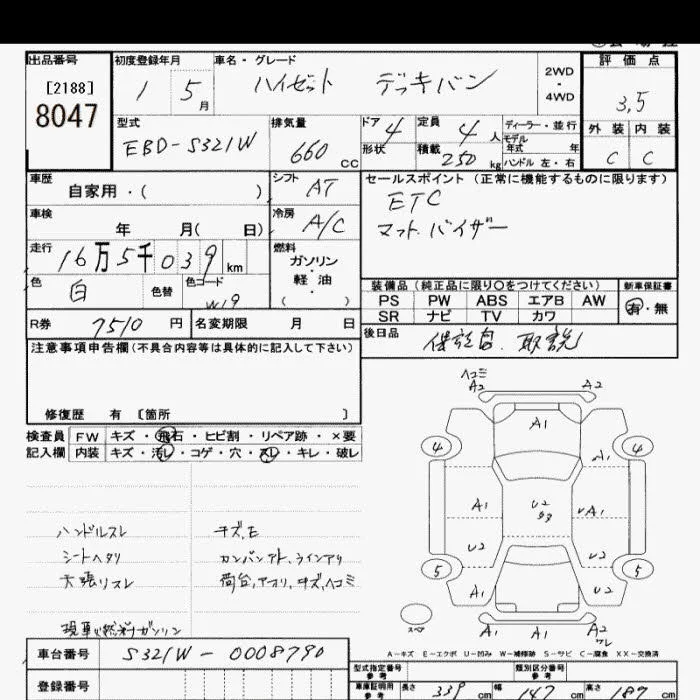 出品番号
[2188]
8047
初度登録年月
1 5 月
車名・グレード
ハイゼット デッキバン
2WD
・
4WD
評価点
3,5
外装 内装
C C
型式
EBD-S321W
排気量
660 CC
ドア 4
形状
定員 4 人
積載 250 kg
ディーラー・並行
モデル
年式 年
ハンドル 左・右
車歴
自家用・( )
シフト AT
セールスポイント (正常に機能するものに限ります)
ETC
マット.バイザー
車検
年 月( 日)
冷房 A/C
走行 16万5千039 km
燃料
ガソリン
・
軽油
( )
色 白
色替
色コード W19
装備品 (純正品に限り○をつけてください)
新車保証書
PS PW ABS エアB AW
SR ナビ TV カワ
有・無
R券 7510 円
名変期限 月 日
後日品 保証書、取説
注意事項申告欄 (不具合内容等は具体的に記入して下さい)
修復歴 有 〔箇所 〕
検査員
記入欄
FW キズ・飛石・ヒビ割・リペア跡・×要
内装 キズ・汚レ・コゲ・穴・スレ・キレ・破レ
ヘコミ
A2 A2
A1
4 4
A1
A1 U2 A1
U2 U2
5 5
A1 U2
スペア
A1 A1 A2
ハンドルスレ
シートヘタリ
天張リスレ
キズ,E
カンバンアト、ラインアリ
荷台,アオリ,キズ,ヘコミ
A-キズ E-エクボ U-凹み W-補修跡 S-サビ C-腐食 XX-交換済
車台番号 S321W-0008790
登録番号
型式指定番号
参考
類別区分番号
参考
車庫証明用
参考
長さ 339 cm 幅 147 cm 高さ 187 cm